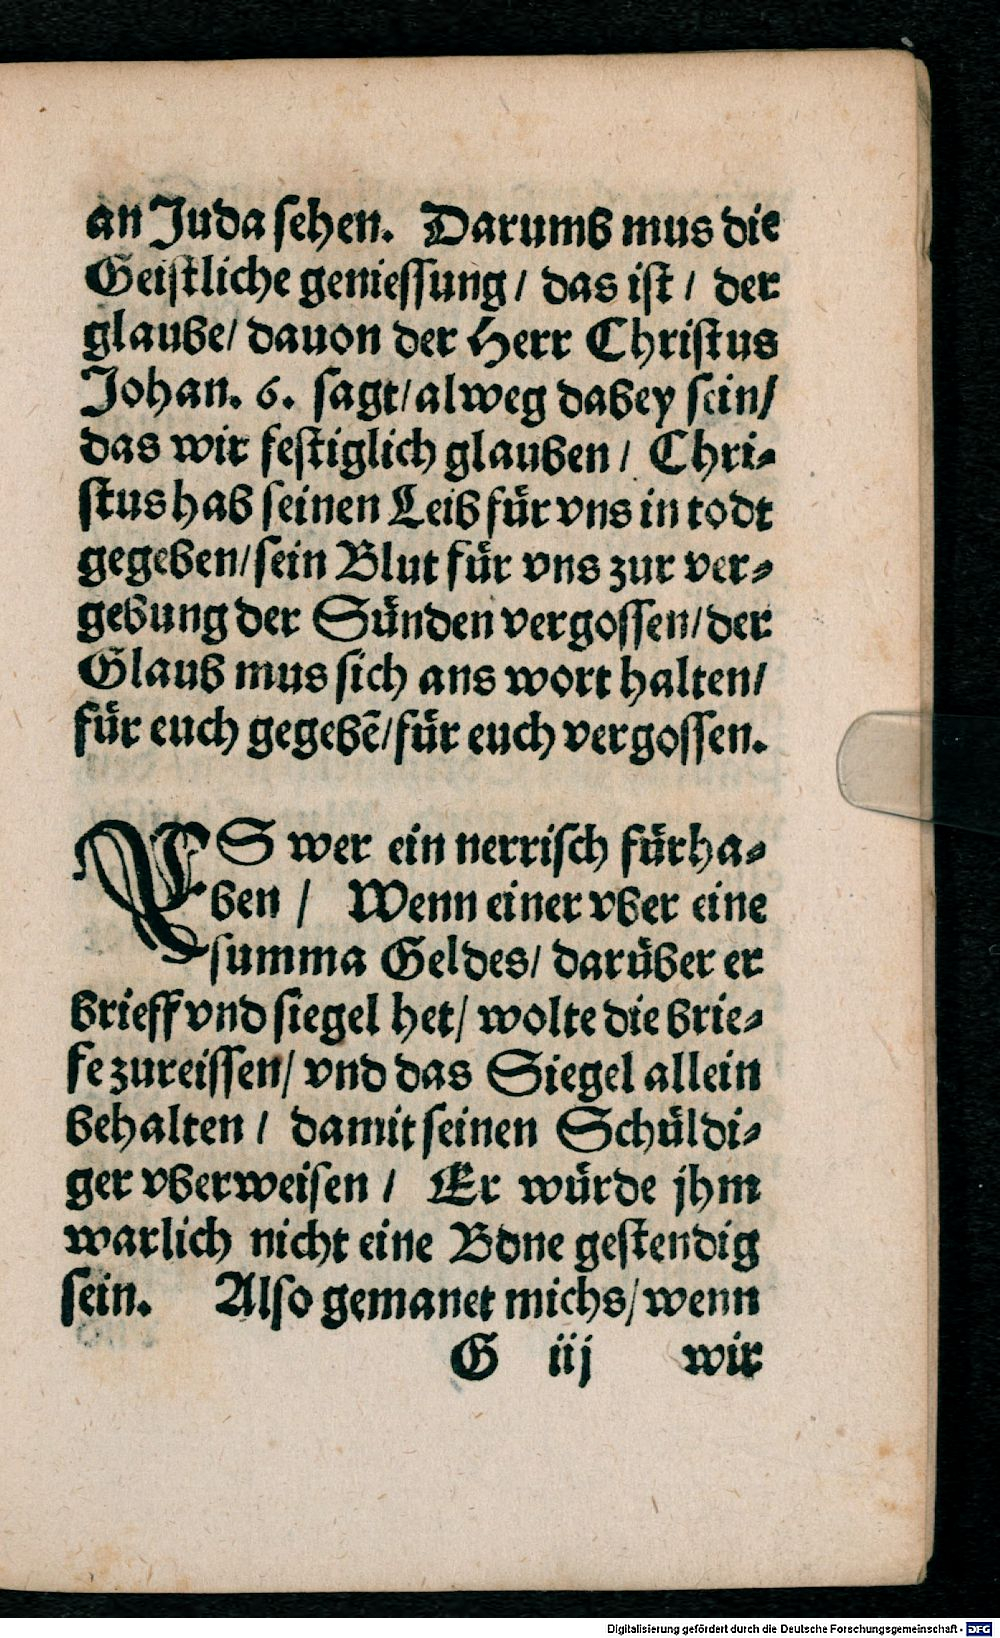 an Juda sehen. Darumb mus die
Geistliche geniessung / das ist / der
glaube / dauon der Herr Christus
Johan. 6. sagt / alweg dabey sein /
das wir festiglich glauben / Chri-
stus hab seinen Leib für vns in todt
gegeben / sein Blut für vns zur ver-
gebung der Sünden vergossen / der
Glaub mus sich ans wort halten /
für euch gegebē / für euch vergossen.
ES wer ein nerrisch fürha-
ben / Wenn einer vber eine
summa Geldes / darüber er
brieff vnd siegel het / wolte die brie-
fe zureissen / vnd das Siegel allein
behalten / damit seinen Schüldi-
ger vberweisen / Er würde jhm
warlich nicht eine Bone gestendig
sein. Also gemanet michs / wenn
G iij wir
Digitalisierung gefördert durch die Deutsche Forschungsgemeinschaft - DFG